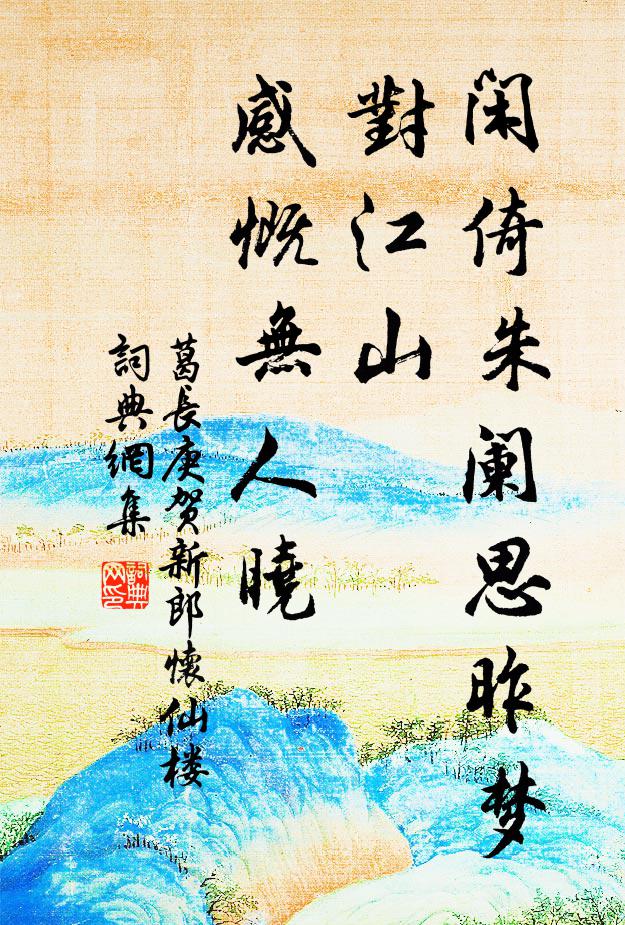 閑倚朱阑思昨梦
對江山
感慨無人曉
葛長庚賀新郎懷仙楼
詞典網集
詞典网印